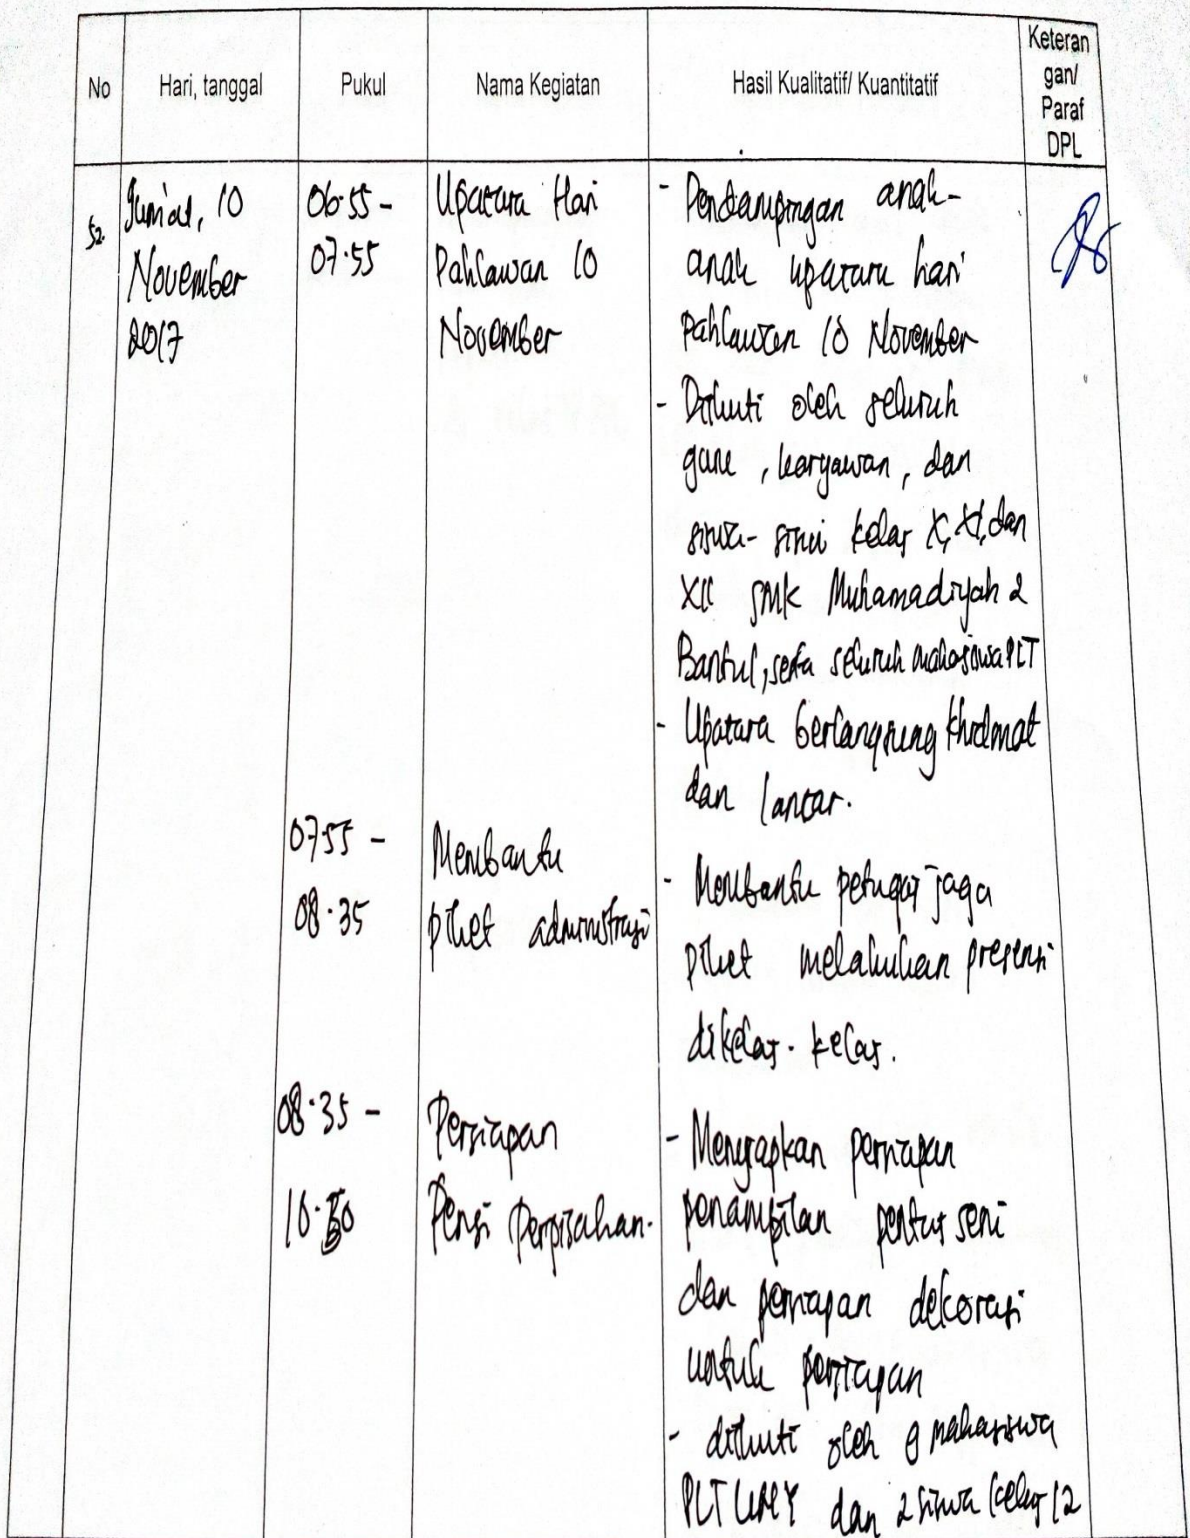 No
Hari, tanggal
Pukul
Nama Kegiatan
Hasil Kualitatif/ Kuantitatif
Keteran
gan/
Paraf
DPL
52.
Jum'at, 10
November
2017
06.55 -
07.55
Upacara Hari
Pahlawan 10
November
- Pendampingan anak-
anak upacara hari
Pahlawan 10 November
- Diikuti oleh seluruh
guru, karyawan, dan
siswa-siswi kelas X, XI, dan
XII SMK Muhamadiyah 2
Bantul, serta seluruh mahasiswa PLT
- Upacara berlangsung khidmat
dan lancar.
07.55 -
08.35
Membantu
piket administrasi
- Membantu petugas jaga
piket melakukan presensi
dikelas-kelas.
08.35 -
Persiapan
Pensi Perpisahan.
- Menyiapkan persiapan
penampilan pentas seni
dan persiapan dekorasi
untuk persiapan
- diikuti oleh 8 mahasiswa
PLT UNY dan 2 siswa kelas 12